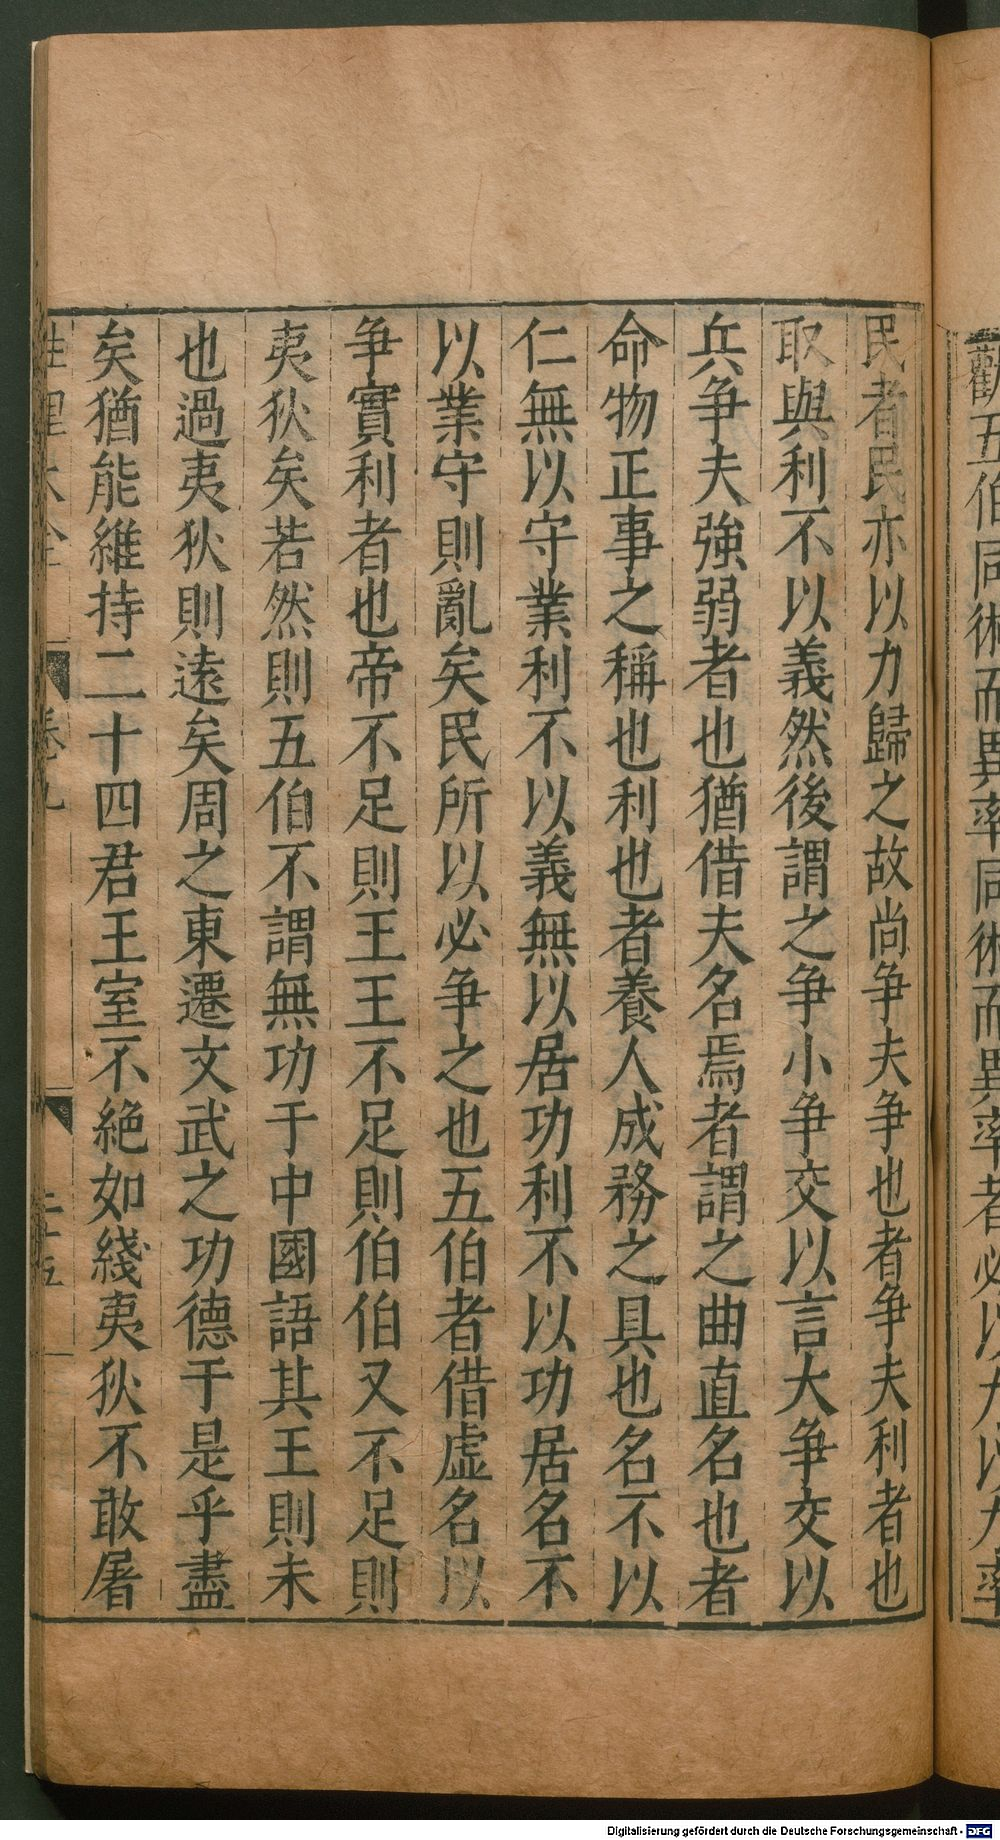 勸五伯同術而異率同術而異率者必以力以力率
民者民亦以力歸之故尚争夫争也者争夫利者也
取與利不以義然後謂之争小争交以言大争交以
兵争夫強弱者也猶借夫名焉者謂之曲直名也者
命物正事之稱也利也者養人成務之具也名不以
仁無以守業利不以義無以居功利不以功居名不
以業守則亂矣民所以必争之也五伯者借虛名以
争實利者也帝不足則王王不足則伯伯又不足則
夷狄矣若然則五伯不謂無功于中國語其王則未
也過夷狄則遠矣周之東遷文武之功德于是乎盡
矣猶能維持二十四君王室不絶如綫夷狄不敢屠
性理大全 卷九 二五
Digitalisierung gefördert durch die Deutsche Forschungsgemeinschaft - DFG